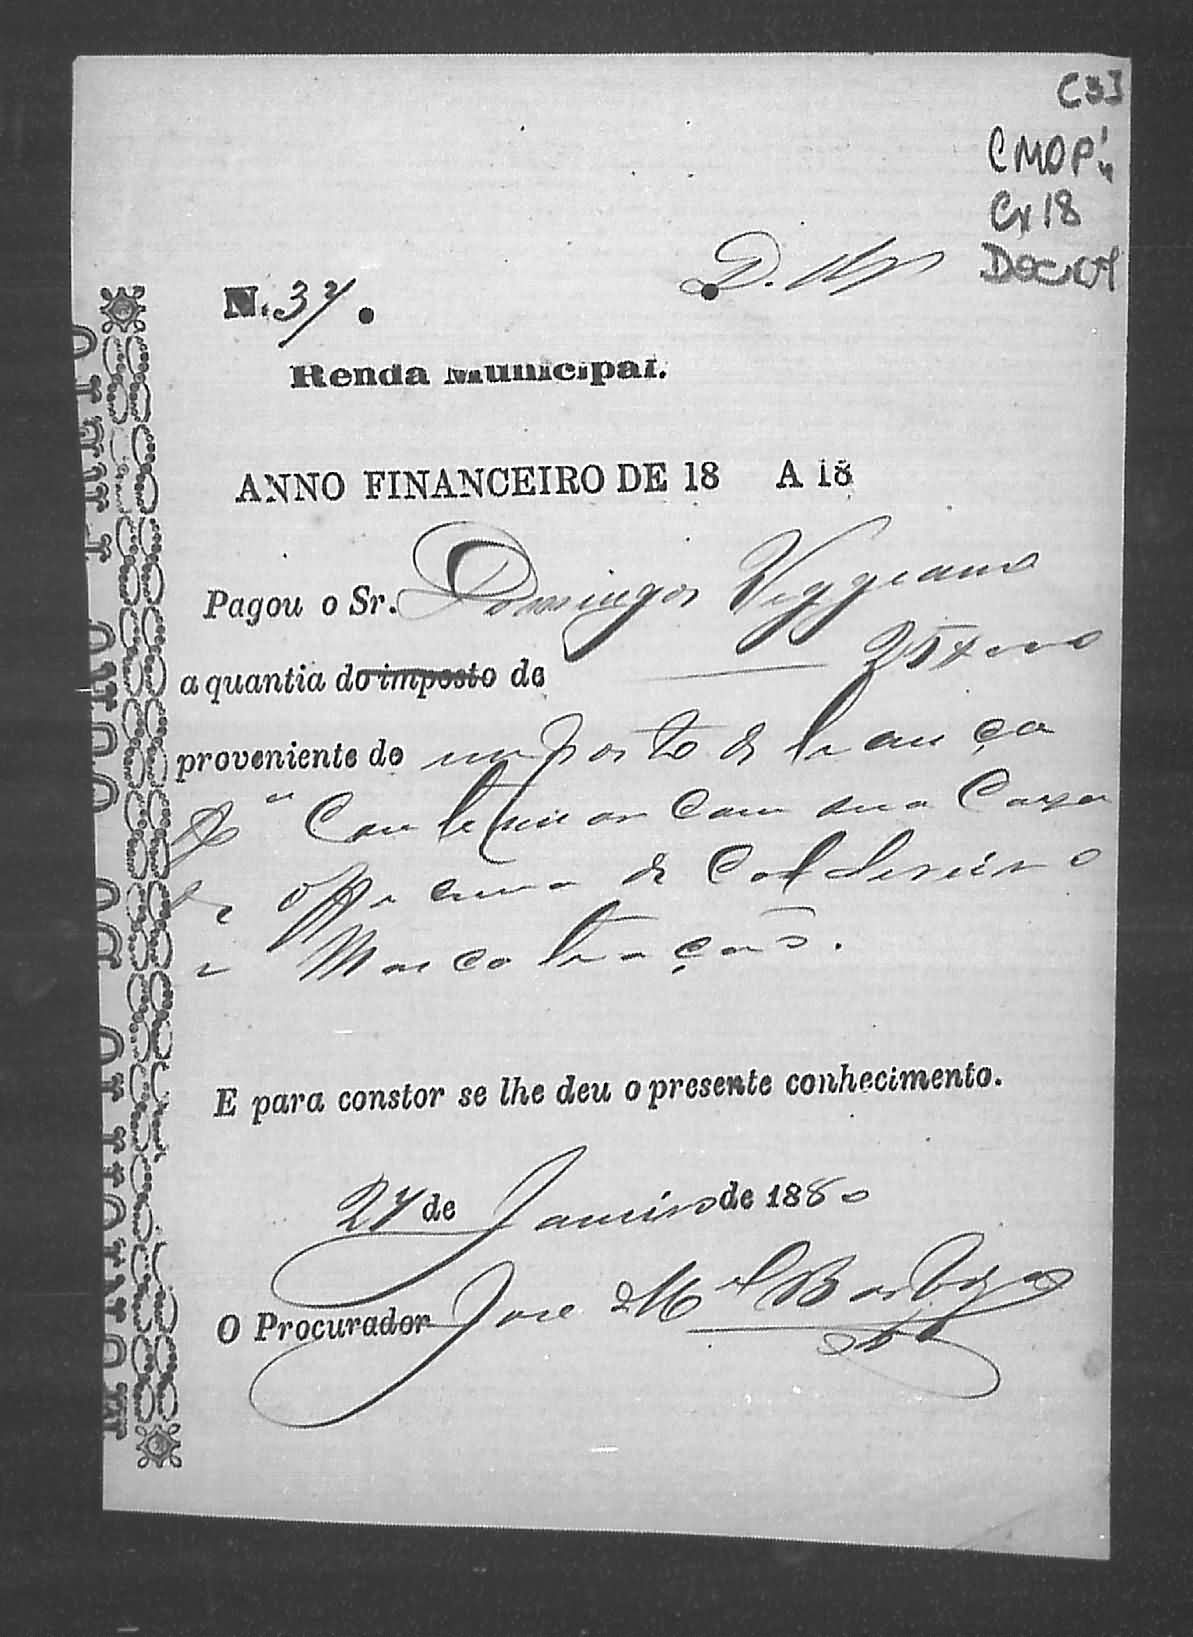 [33]
CMOP
Cx 18
N. 37.
Renda Municipal.
ANNO FINANCEIRO DE 18 A 18
Pagou o Sr. Domingos Viggiano
a quantia do imposto de 25$000
proveniente de imposto de licença
pª Continuar com sua Casa
de officina de Caldereiro
e
E para constar se lhe deu o presente conhecimento.
27 de Janeiro de 1880
O Procurador José Mel Barboza